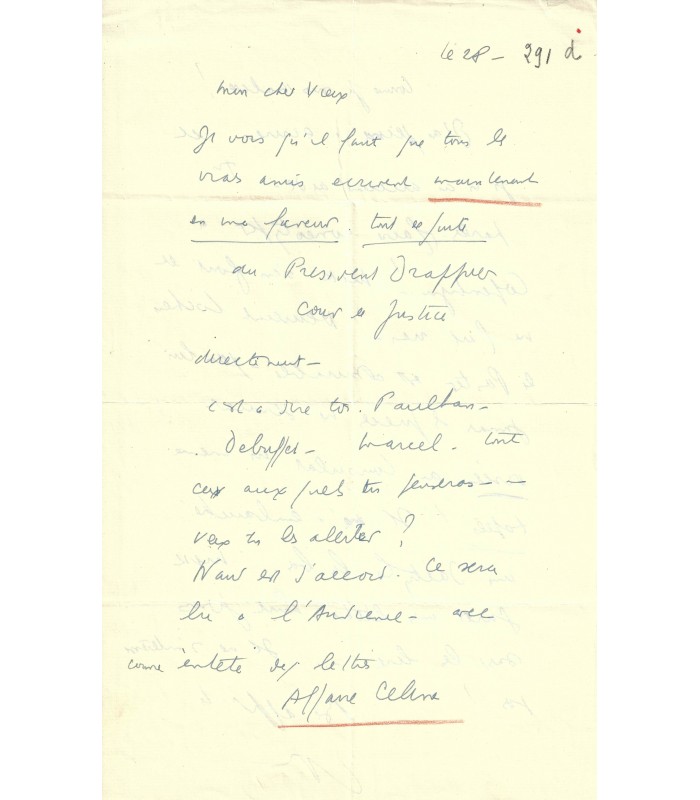 le 28 - 291 d
mon cher Vieux
Je vois qu'il faut que tous les
vrais amis ecrivent maintenant
en ma faveur. tout de suite
au President Drappier
Cour de Justice
directement -
c'est a dire toi. Paulhan -
Debuffet - Marcel. tout
ceux aux quels tu penseras - -
veux tu les alerter ?
Naud est d'accord. Ce sera
lu a l'Audience - avec
comme entete des lettres
Affaire Celine